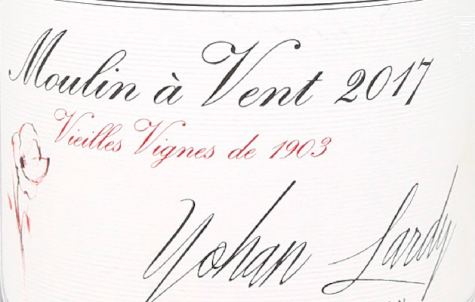 Moulin à Vent 2017
Vieilles Vignes de 1903
Yohan Lardy